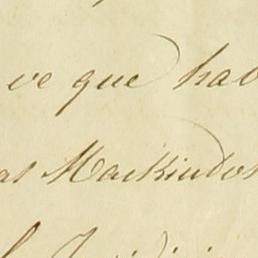 ve que hab
as Mackindos